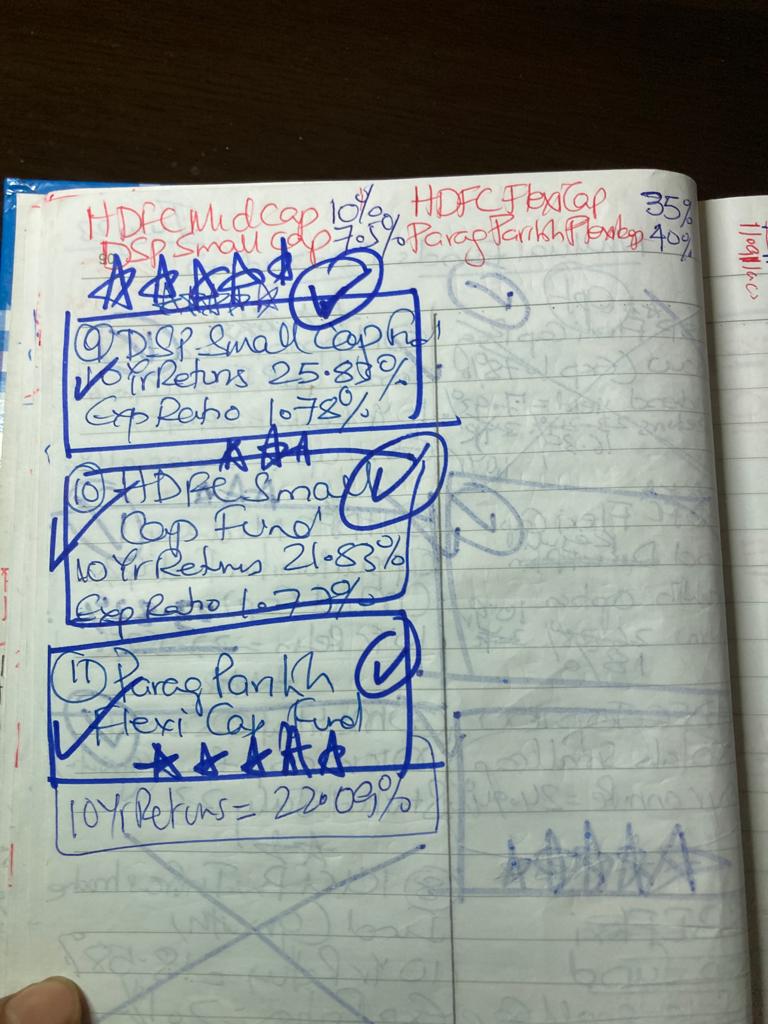 HDFC Mid Cap 10% HDFC Flexi Cap 35%
DSP Small Cap 7.5% Parag Parikh Flexicap 40%
90
9 DSP Small Cap Fund
10 Yr Returns 25.85%
Exp Ratio 1.78%
10 HDFC Small
Cap Fund
10 Yr Returns 21.83%
Exp Ratio 1.77%
11 Parag Parikh
Flexi Cap Fund
10 Yr Returns = 22.09%